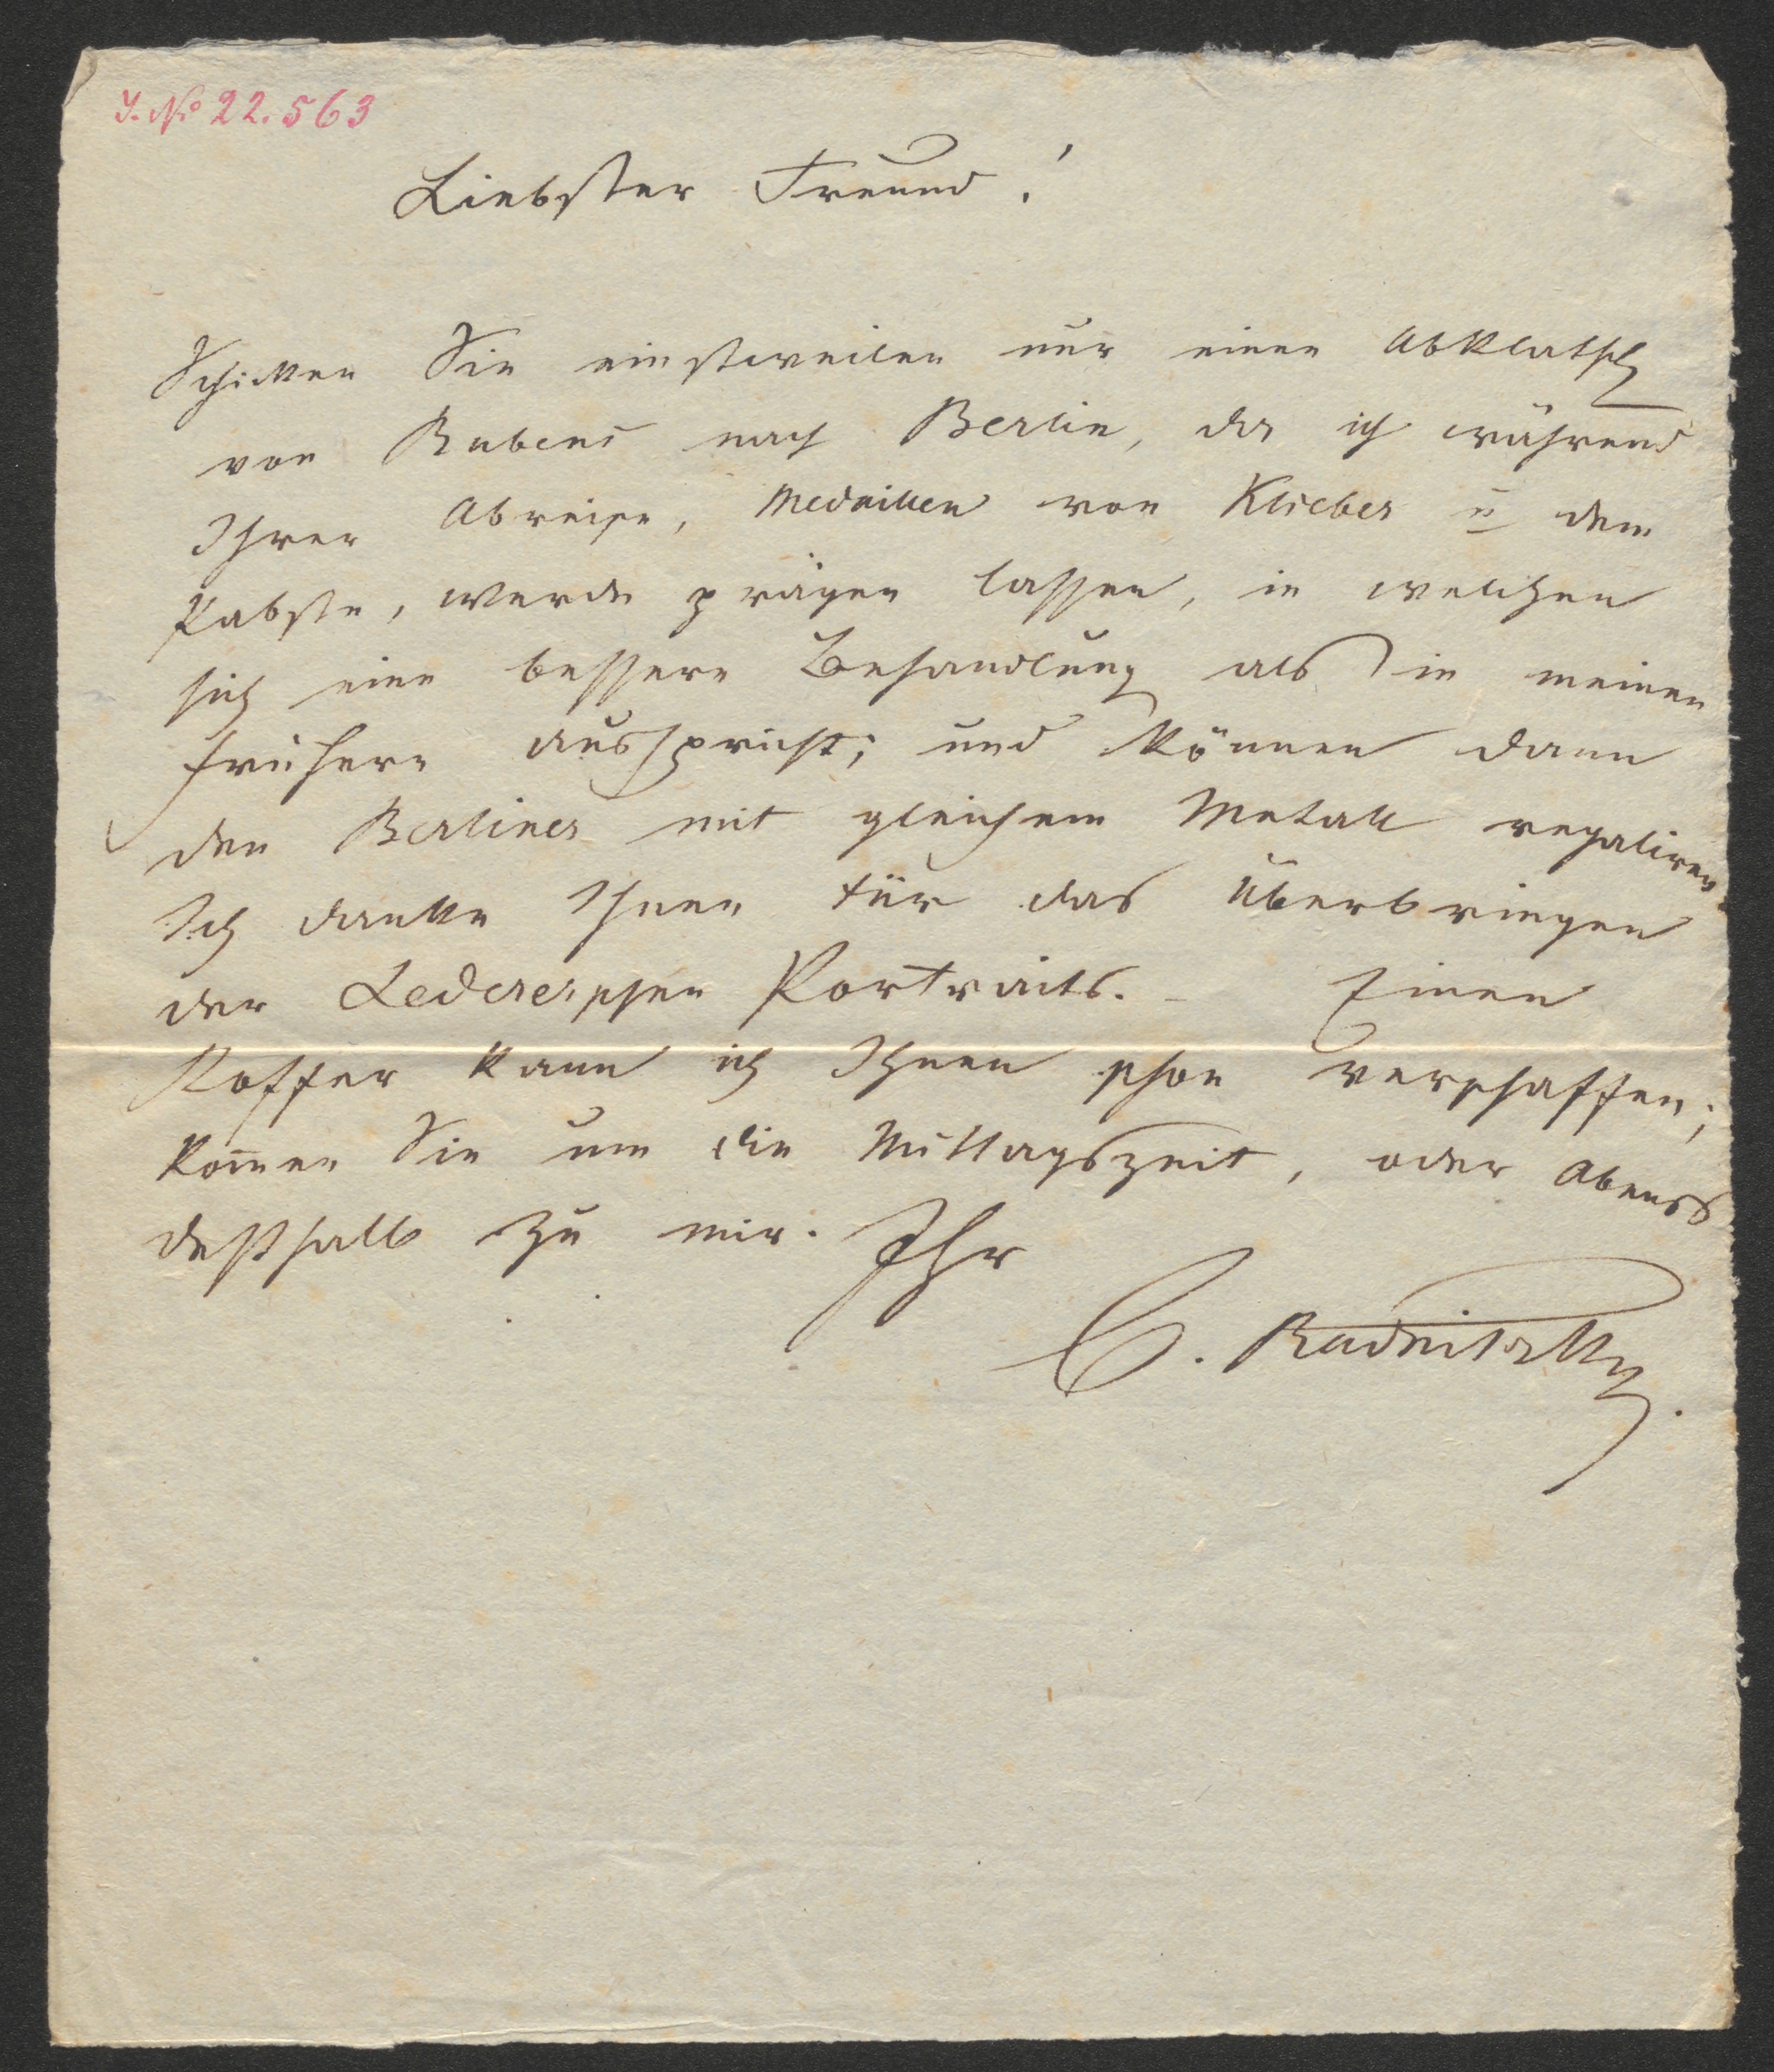 J. No 22.563
Liebster Freund!
Schicken Sie einstweilen nur einen Abklatsch
von Rubens nach Berlin, da ich während
Ihrer Abreise, Medaillen von Klieber u dem
Pabste, werde prägen lassen, in welchen
sich eine bessere Behandlung als in meinen
frühern ausspricht; und können dann
den Berliner mit gleichem Metall regaliren.
Ich danke Ihnen für das Überbringen
der Ledererschen Portraits. – Einen
Koffer kann ich Ihnen schon verschaffen;
kom̄en Sie um die Mittagszeit, oder Abends
deßhalb zu mir. Ihr
C. Radnitzky.